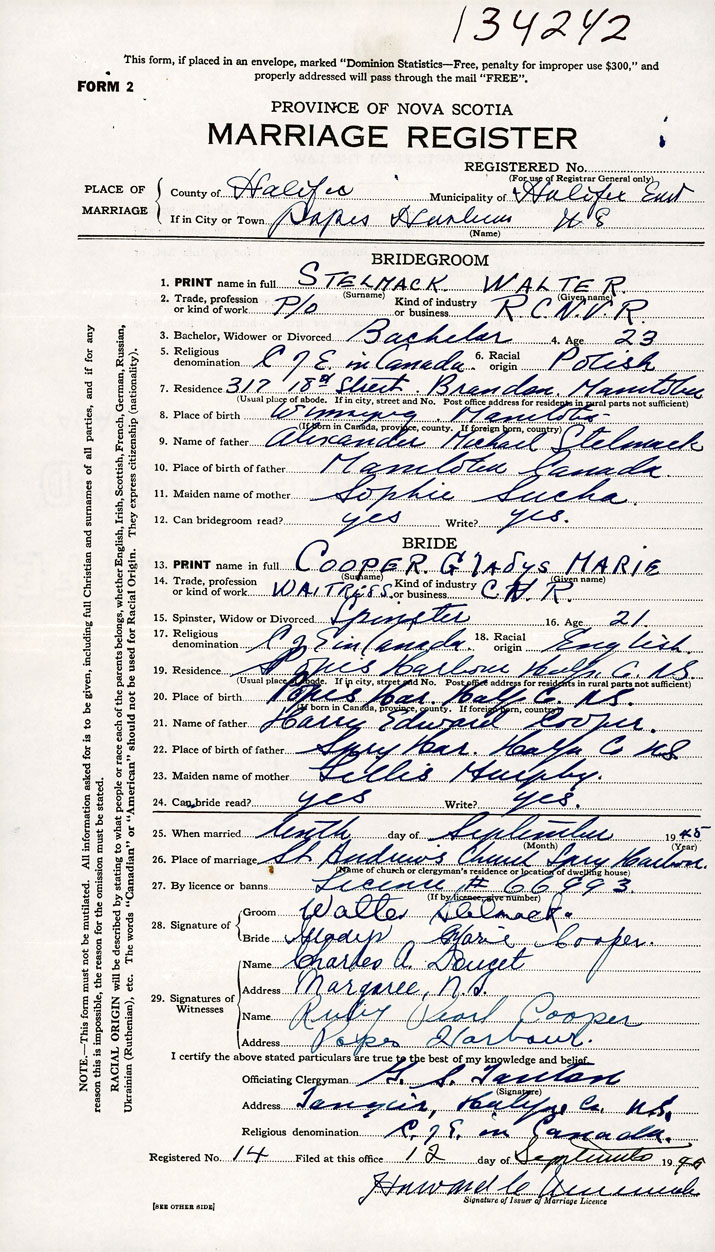 134242
This form, if placed in an envelope, marked "Dominion Statistics—Free, penalty for improper use $300," and
properly addressed will pass through the mail "FREE".
FORM 2
PROVINCE OF NOVA SCOTIA
MARRIAGE REGISTER
REGISTERED No.
(For use of Registrar General only)
PLACE OF MARRIAGE
County of Halifax Municipality of Halifax East
If in City or Town Popes Harbour N S
(Name)
BRIDEGROOM
1. PRINT name in full STELMACK WALTER
(Surname) (Given name)
2. Trade, profession or kind of work P/O Kind of industry or business R.C.N.V.R.
3. Bachelor, Widower or Divorced Bachelor 4. Age 23
5. Religious denomination C of E. in Canada 6. Racial origin Polish
7. Residence 317 18th Street. Brandon. Manitoba
(Usual place of abode. If in city, street and No. Post office address for residents in rural parts not sufficient)
8. Place of birth Winnipeg Manitoba
(If born in Canada, province, county. If foreign born, country)
9. Name of father Alexander Michael Stelmack
10. Place of birth of father Manitoba Canada.
11. Maiden name of mother Sophie Sucha.
12. Can bridegroom read? yes Write? yes.
BRIDE
13. PRINT name in full COOPER. GlAdys MARIE
(Surname) (Given name)
14. Trade, profession or kind of work WAITRESS Kind of industry or business C.N.R.
15. Spinster, Widow or Divorced Spinster 16. Age 21.
17. Religious denomination C of E in Canada. 18. Racial origin English.
19. Residence Popes Harbour Halfx C. NS.
(Usual place of abode. If in city, street and No. Post office address for residents in rural parts not sufficient)
20. Place of birth Popes Har. Halfx Co. NS.
(If born in Canada, province, county. If foreign born, country)
21. Name of father Harry Edward Cooper.
22. Place of birth of father Spry Har. Halfx Co NS
23. Maiden name of mother Lillis Murphy.
24. Can bride read? yes Write? yes.
25. When married tenth day of September 1945
(Month) (Year)
26. Place of marriage St. Andrew's Church Spry Harbour.
(Name of church or clergyman's residence or location of dwelling house)
27. By licence or banns License # 66993.
(If by licence, give number)
28. Signature of Groom Walter Stelmack.
Bride Gladys Marie Cooper.
29. Signatures of Witnesses
Name Charles A. Douget
Address Margaree, N.S.
Name Ruby Pearl Cooper
Address Popes Harbour.
I certify the above stated particulars are true to the best of my knowledge and belief.
Officiating Clergyman G. S. Tanton
(Signature)
Address Tangier, Halifax Co. N.S.
Religious denomination C. of E. in Canada.
Registered No. 14 Filed at this office 12 day of September 1945
Howard C
Signature of Issuer of Marriage Licence
[SEE OTHER SIDE]
NOTE.—This form must not be mutilated. All information asked for is to be given, including full Christian and surnames of all parties, and if for any
reason this is impossible, the reason for the omission must be stated.
RACIAL ORIGIN will be described by stating to what people or race each of the parents belongs, whether English, Irish, Scottish, French, German, Russian,
Ukrainian (Ruthenian), etc. The words "Canadian" or "American" should not be used for Racial Origin. They express citizenship (nationality).